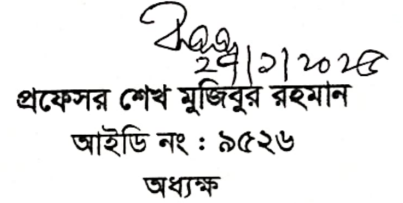 প্রফেসর শেখ মুজিবুর রহমান
আইডি নং : ৯৫২৬
অধ্যক্ষ